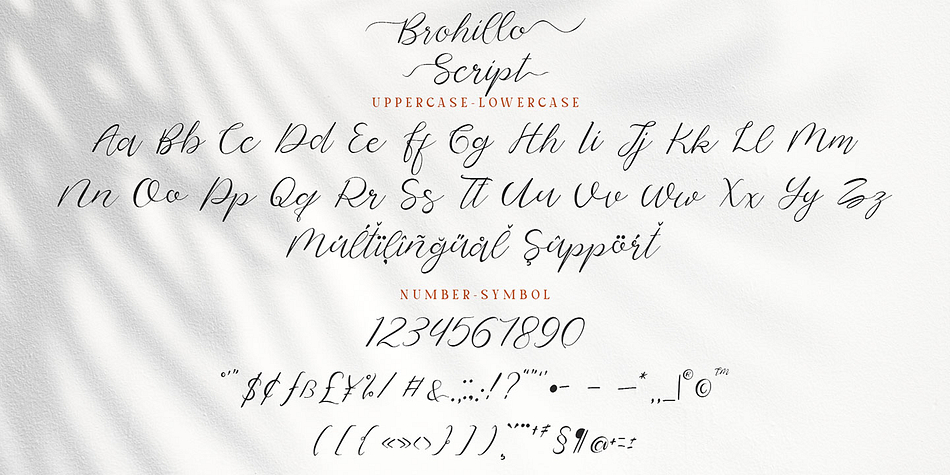 Brohillo
Script
UPPERCASE-LOWERCASE
Aa Bb Cc Dd Ee Ff Gg Hh Ii Jj Kk Ll Mm
Nn Oo Pp Qq Rr Ss Tt Uu Vv Ww Xx Yy Zz
NUMBER-SYMBOL
1234567890
°'" $¢ƒß£¥%/ #&.,:;…·!? “”‘’•- – —*‚„_|®©™
([{«»‹›}]) §¶@+=±